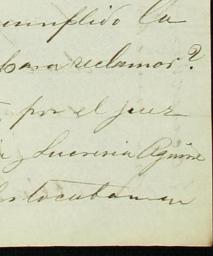 cumplido la
para reclamar?
por el juez
y Lucrecia Aguirre
les tocaba en